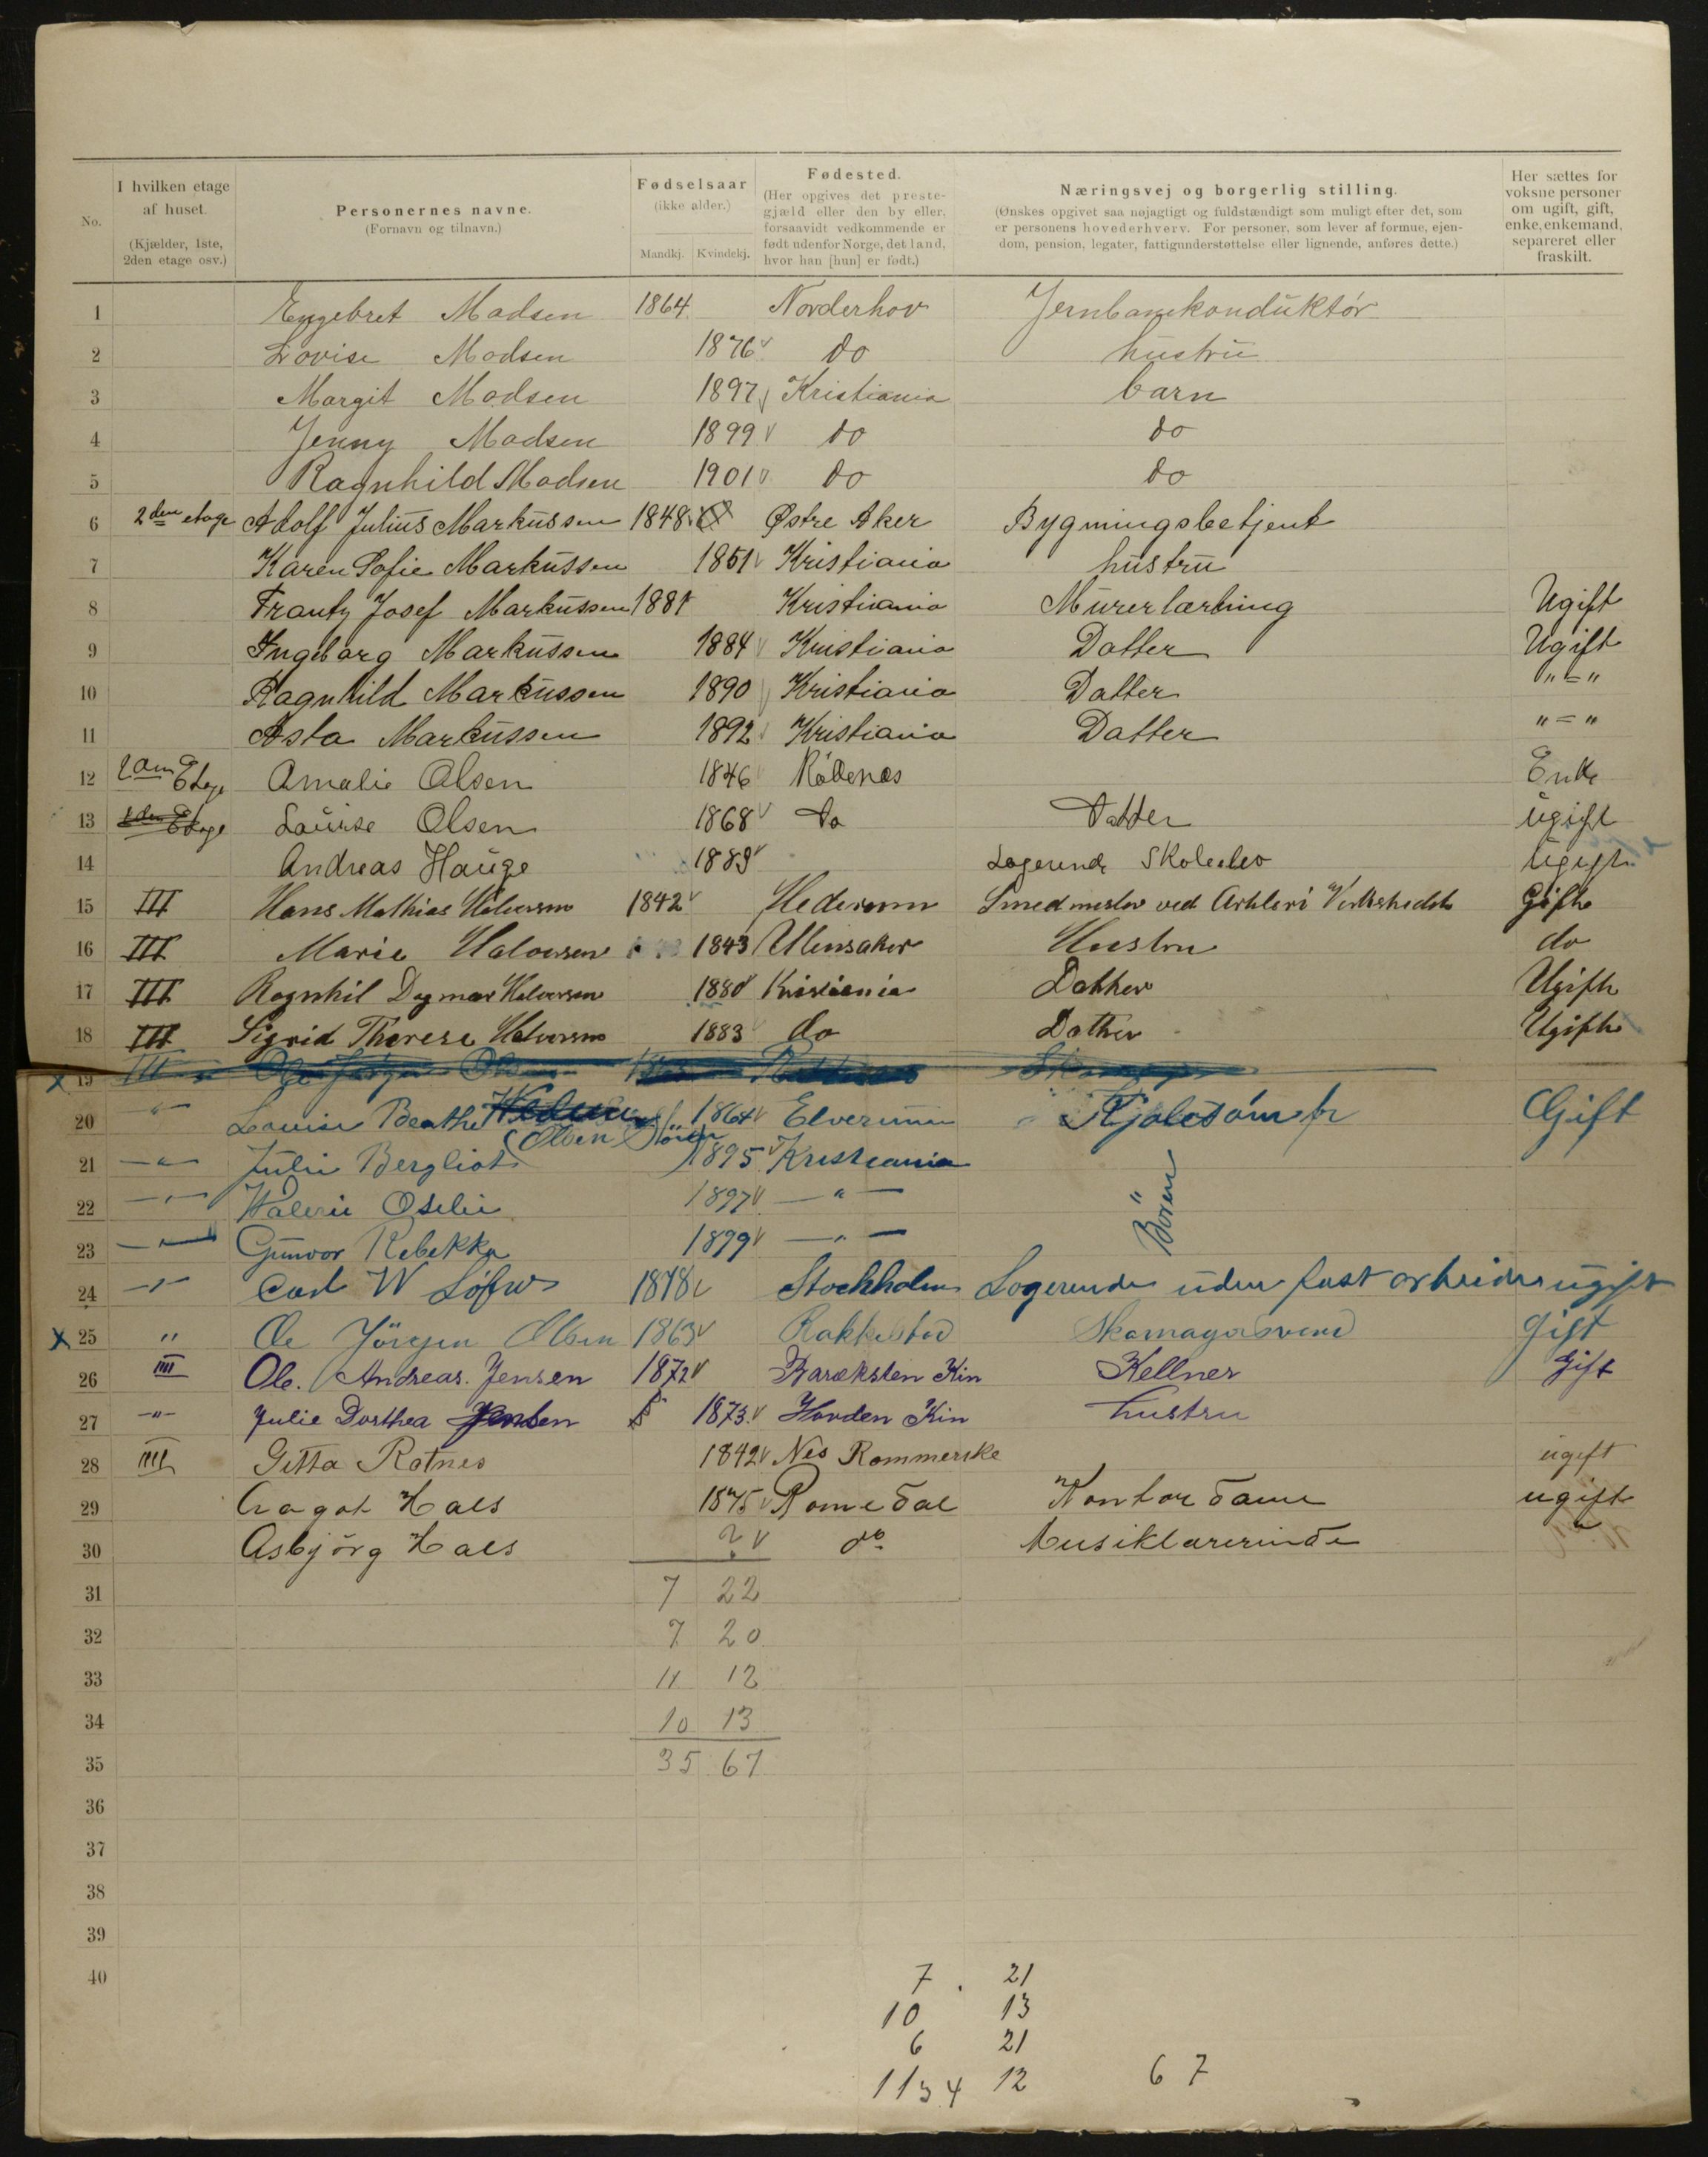 No.
I hvilken etage af huset. (Kjælder, 1ste, 2den etage osv.)
Personernes navne. (Fornavn og tilnavn.)
Fødselsaar (ikke alder.) Mandkj. Kvindekj.
Fødested. (Her opgives det prestegjæld eller den by eller, forsaavidt vedkommende er født udenfor Norge, det land, hvor han [hun] er født.)
Næringsvej og borgerlig stilling. (Ønskes opgivet saa nøjagtigt og fuldstændigt som muligt efter det, som er personens hovederhverv. For personer, som lever af formue, ejendom, pension, legater, fattigunderstøttelse eller lignende, anføres dette.)
Her sættes for voksne personer om ugift, gift, enke, enkemand, separeret eller fraskilt.
1 Engebret Madsen 1864 Norderhov Jernbanekonduktór
2 Lovise Madsen 1876 do hustru
3 Margit Madsen 1897 Kristiania barn
4 Jenny Madsen 1899 do do
5 Ragnhild Madsen 1901 do do
6 2den etage Adolf Julius Markussen 1848 Østre Aker Bygningsbetjent
7 Karen Sofie Markussen 1851 Kristiania hustru
8 Frantz Josef Markussen 1881 Kristiania Murerlærling Ugift
9 Ingeborg Markussen 1884 Kristiania Datter Ugift
10 Ragnhild Markussen 1890 Kristiania Datter "="
11 Asta Markussen 1892 Kristiania Datter "="
12 Etage Amalie Olsen 1846 Rödenæs Enke
13 Etage Laurse Olsen 1868 Do Datter ugift
14 Andreas Hauge 1889 Logerende Skoleelev ugift
15 III Hans Mathias Halvorsen 1842 Hederum Smedmester ved Artileri Verkstedet Gift
16 III Marie Halvorsen 1843 Ullensaker Hustru do
17 III Ragnhil Dagmar Halvorsen 1880 Kristiania Datter Ugift
18 III Sigrid Therese Halvorsen 1883 do Datter Ugift
x 19 III
20 " Louise Beathe (Olsen 1864 Elverum Gift
21 —"— Julie Bergliot 1895 Kristiania
22 —"— Valerie Oselie 1897 —"—
Börn
23 —"— Gunvor Rebekka 1899 —"—
24 —"— Carl W Löfw 1878 Stockholm Logerende uden fast arbeide ugift
x 25 " Ole Jörgen Olsen 1863 Rakkestad Skomagersvend gift
26 IIII Ole. Andreas. Jensen 1872 Baræksten Kin Kellner Gift
27 —"— Julie Dorthea Jensen 1873 Horden Kin hustru
28 IIII Gitta Rotnes 1842 Nes Rommerike ugift
29 Aagot Hals 1875 Romedal Kontordame ugift
30 Asbjörg Hals ? do Musiklærerinde "
31 7 22
32 7 20
33 11 12
34 10 13
35 35 67
36
37
38
39
40
7 . 21
10 13
6 21
11 34 12 67